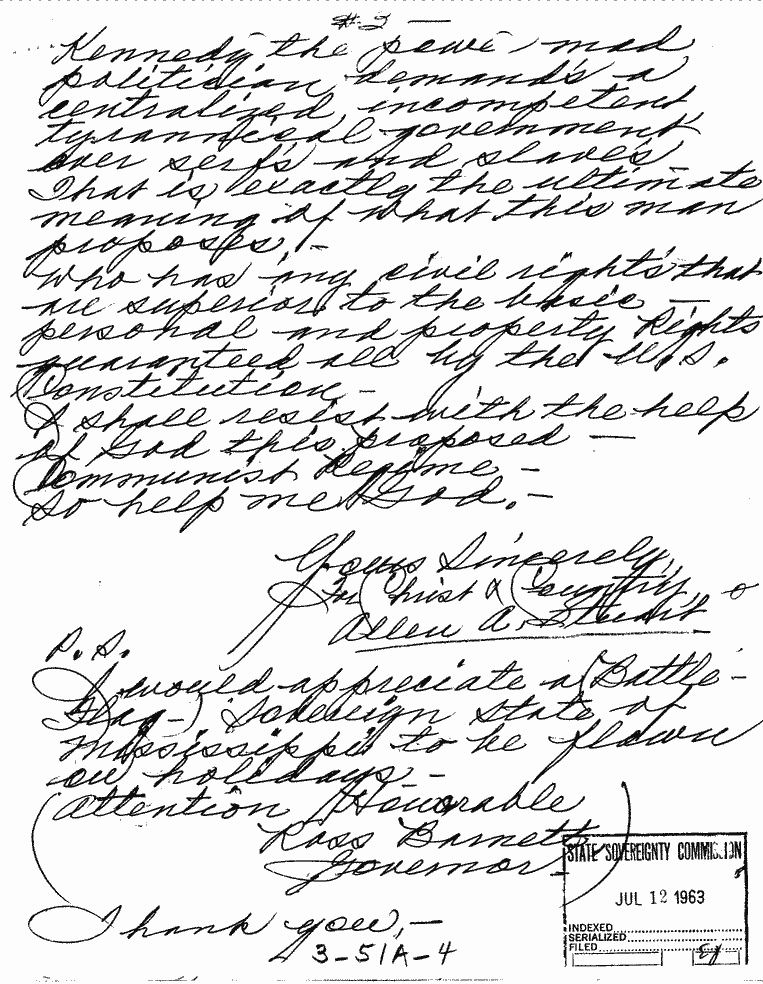 #2 —
Kennedy the powe mad
politician, demands a
centralized, incompetent
tyrannical government
over serfs and slaves
That is, exactly the ultimate
meaning of what this man
proposes. —
Who has any civil rights that
are superior to the basic —
personal and property Rights
guaranteed all by the U.S.
Constitution. —
I shall resist with the help
of God this proposed —
Communist Regime —
So help me God. —
Yours Sincerely,
For Christ & Country,
Allen A. Stuart
P.S.
I would appreciate a (Battle-
Flag-) Sovereign State of
Mississippi to be flown
on holidays —
(Attention Honorable
Ross Barnett
Governor)
Thank you, —
3-51A-4
STATE SOVEREIGNTY COMMISSION
JUL 12 1963
INDEXED
SERIALIZED
FILED